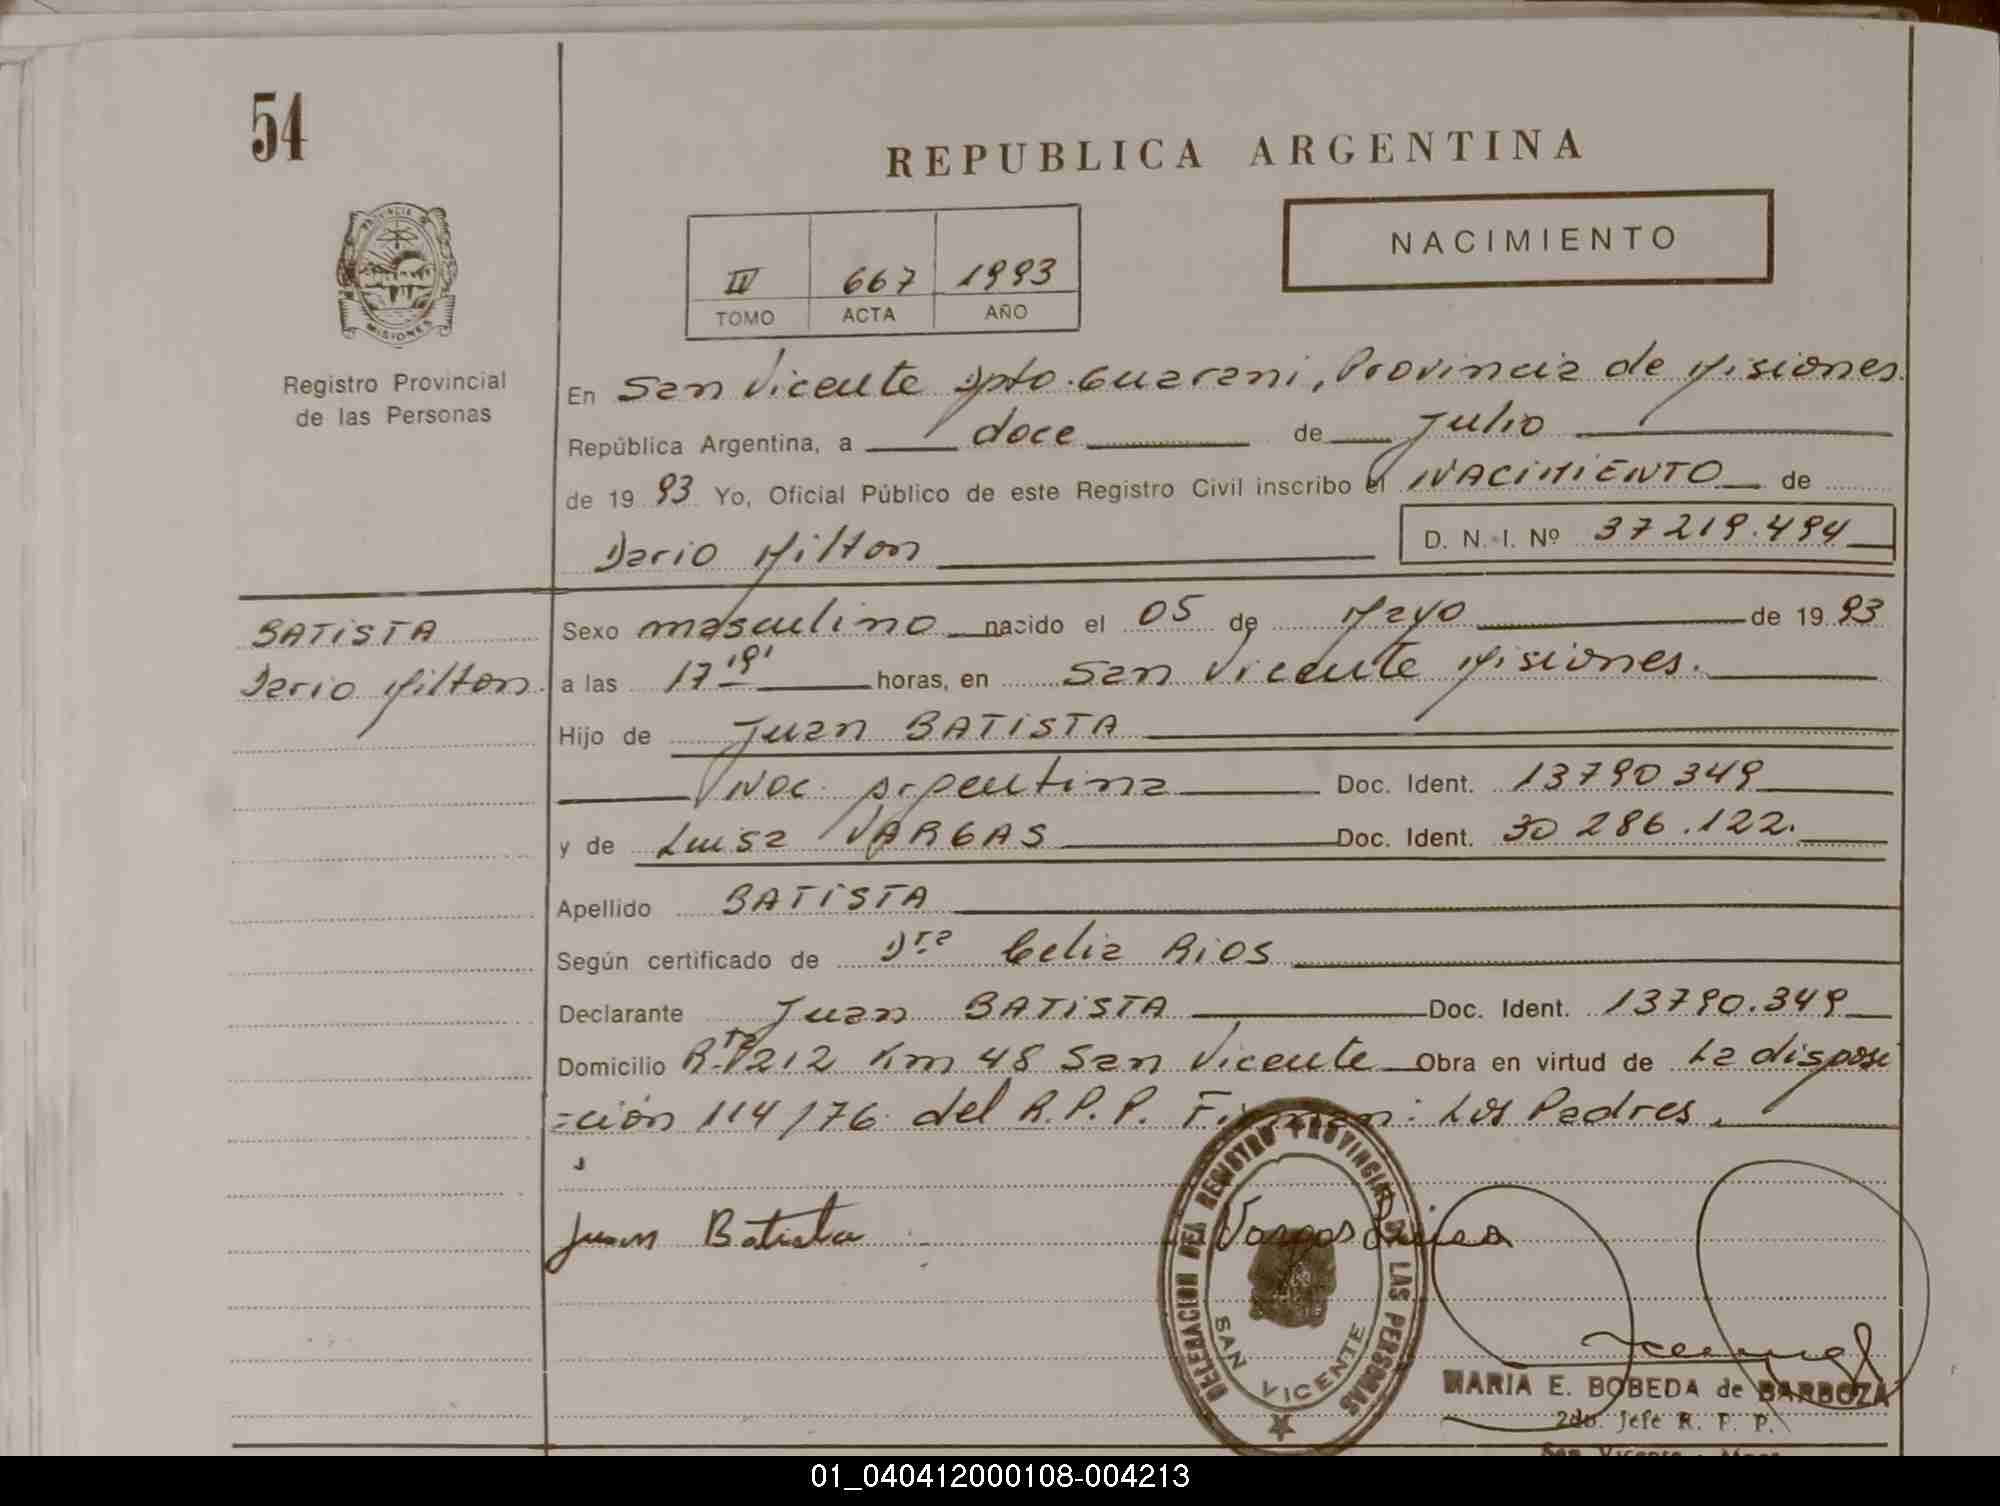 54
REPUBLICA ARGENTINA
PROVINCIA DE
MISIONES
Registro Provincial
de las Personas
NACIMIENTO
IV 667 1993
TOMO ACTA AÑO
En San Vicente Dpto. Guarani, Provincia de Misiones.
República Argentina, a doce de Julio
de 19 93 Yo, Oficial Público de este Registro Civil inscribo el NACIMIENTO de
Dario Milton D. N. I. Nº 37219.494
BATISTA
Dario Milton.
Sexo masculino nacido el 05 de Mayo de 19 93
a las 17 19' horas, en San Vicente Misiones.
Hijo de Juan BATISTA
Nac. Argentina Doc. Ident. 13790349
y de Luisa VARGAS Doc. Ident. 30 286.122.
Apellido BATISTA
Según certificado de Dra Celia Rios
Declarante Juan BATISTA Doc. Ident. 13790.349
Domicilio R. P 212 Km 48 San Vicente Obra en virtud de La disposi
=ción 114/76 del R.P.P. Firman: Los Padres.
Juan Batista Vargas
DELEGACION DEL REGISTRO PROVINCIAL DE LAS PERSONAS
SAN VICENTE
MARIA E. BOBEDA de BARBOZA
2do. Jefe R. P. P.
San Vicente - Mnes.
01_040412000108-004213